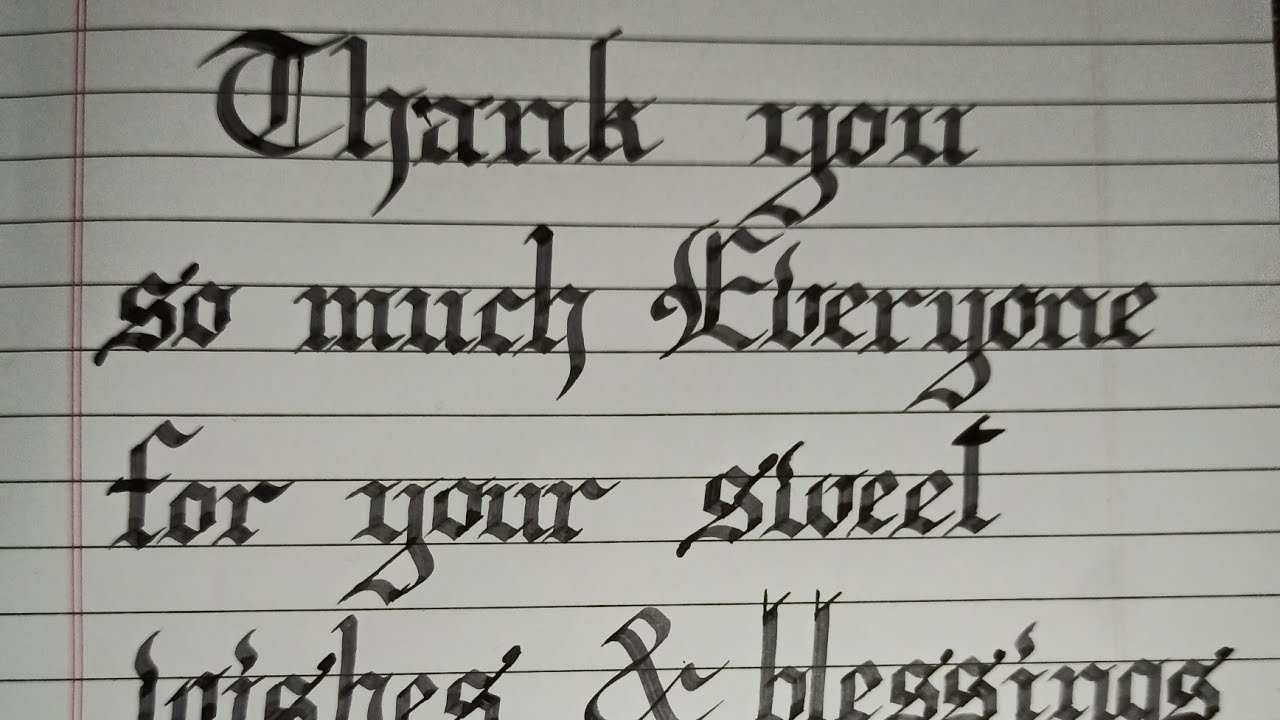 Thank you
so much Everyone
for your sweet
wishes & blessings